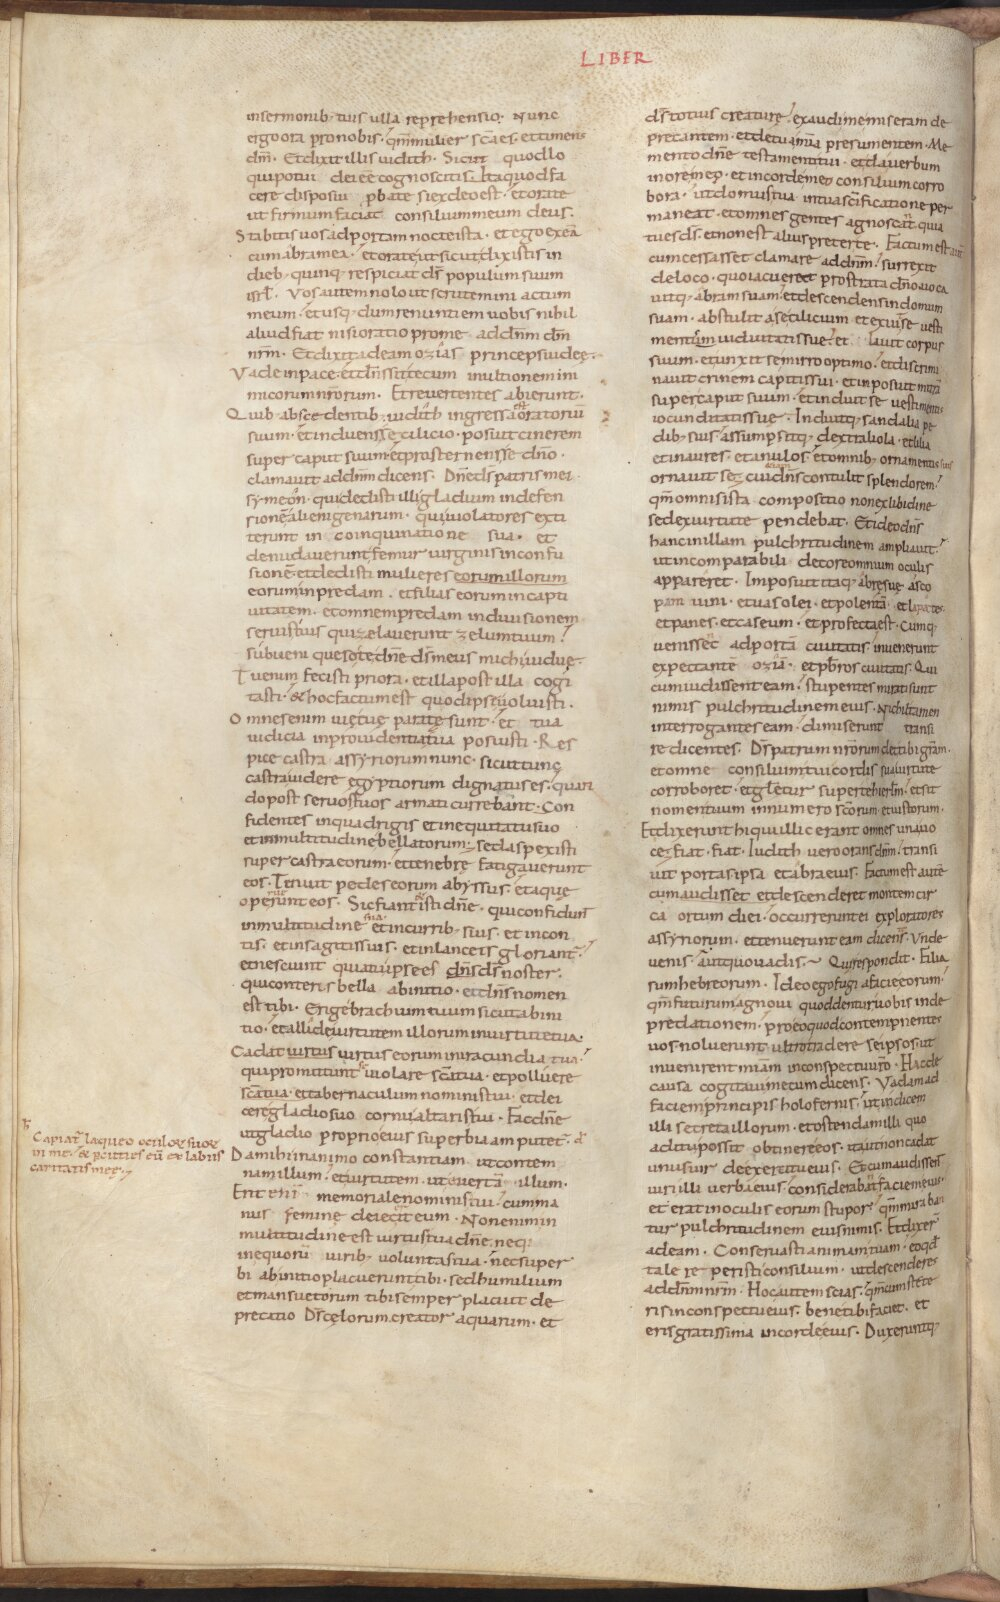 LIBER
in sermonib; tuis ulla reprehensio. Nunc
ergo ora pro nobis. qm̄ mulier sc̄a es. et timens
dm̄. Et dixit illis iudith. Sicut quod lo
qui potui dei eē cognoscitis. Ita quod fa
cere disposui ꝓbate si ex deo est. et orate
ut firmum faciat consilium meum deus.
Stabitis uos ad portam nocte ista. et ego exeā
cum abra mea. et orate ut sicut dixistis in
dieb; quinq; respiciat ds̄ populum suum
isrl̄. Vos autem nolo ut scrutemini actum
meum. et usq; dum renuntiem uobis nihil
aliud fiat nisi oratio pro me. ad dn̄m dm̄
nrm̄. Et dixit ad eam ozias princeps iudeę.
Vade in pace. et dn̄s sit tecum in ultionem ini
micorum nr̄orum. Et reuertentes abierunt.
Quib; abscedentib; iudith ingressa ē oratoriū
suum. et induens se cilicio. posuit cinerem
super caput suum. et prosternens se dn̄o.
clamauit ad dn̄m dicens. Dn̄e ds̄ patris mei
symeon. qui dedisti illi gladium in defen
sionē alienigenarum. qui uiolatores exti
terunt in coinquinatione sua. et
denudauerunt femur uirginis in confu
sionē. et dedisti mulieres eorum illorum
eorum in predam. et filias eorum in capti
uitatem. et omnem predam in diuisionem
seruis tuis qui zelauerunt zelum tuum.
subueni queso te dn̄e ds̄ meus michi uiduę.
Tu enim fecisti priora. et illa post illa cogi
tasti. & hoc factum est quod ipse uoluisti.
Omnes enim uię tuę paratę sunt. et tua
iudicia in prouidentia tua posuisti. Res
pice castra assyriorum nunc. sicut tunc
castra uidere egyptiorum dignatus es. quan
do post seruos tuos armati currebant. Con
fidentes in quadrigis et in equitatu suo
et in multitudine bellatorum. sed aspexisti
super castra eorum. et tenebrę fatigauerunt
eos. Tenuit pedes eorum abyssus. et aquę
operuerunt eos. Sic fiant et isti dn̄e. qui confidunt
in multitudine sua et in currib; suis. et in con
tis. et in sagittis suis. et in lanceis gloriant̄.
et nesciunt quia tu ipse es dn̄s ds̄ noster.
qui conteris bella ab initio. et dn̄s nomen
est tibi. Erige brachium tuum sicut ab ini
tio. et allide uirtutem illorum in uirtute tua.
Cadat uirtus uirtus eorum in iracundia tua.
qui promittunt se uiolare sc̄a tua. et polluere
sc̄a tua. et tabernaculum nominis tui. et dei
cere gladio suo cornu altaris tui. Fac dn̄e
ut gladio proprio eius superbia amputet̄.
Da mihi in animo constantiam ut contem
nam illum. et uirtutem. ut euertā illum.
Erit enī memoriale nominis tui. cum ma
nus feminę deiecerit eum. Non enim in
multitudine est uirtus tua dn̄e. neq;
in equorū uirib; uoluntas tua. nec super
bi ab initio placuerunt tibi. sed humilium
et mansuetorum tibi semper placuit de
precatio. Ds̄ celorum. creator aquarum. et
Capiat̄ laqueo oculorꝫ suorꝫ
in me. & ꝑcuties eū ex labiis
caritatis meę.
ds̄ totius creaturę. exaudi me miseram de
precantem. et de tua mīa presumentem. Me
mento dn̄e testamenti tui. et da uerbum
in ore meo. et in corde meo consilium corro
bora. ut domus tua in tua sc̄ificatione per
maneat. et omnes gentes agnoscāt quia
tu es ds̄. et non est alius preter te. Factum est aut̄
cum cessasset clamare ad dn̄m. surrexit
de loco. quo iacuerat prostrata dn̄o. uoca
uitq; abram suam. et descendens in domum
suam. abstulit a se cilicium et exuit se uesti
mentum uiduitatis suę. et lauit corpus
suum. et unxit se mirro optimo. et discrimi
nauit crinem capitis sui. et inposuit mitrā
super caput suum. et induit se uestimentis
iocunditatis suę. Induitq; sandalia pe
dib; suis. assumpsitq; dextraliola. et lilia
et inaures. et anulos. et omnib; ornamentis suis
ornauit se. cui etiam dn̄s contulit splendorem.
qm̄ omnis ista compositio non ex libidine
sed ex uirtute pendebat. Et ideo dn̄s
hanc in illam pulchritudinem ampliauit.
ut incomparabili decore omnium oculis
appareret. Imposuit itaq; abrę suę asco
pam uini. et uas olei. et polentā. et lapates.
et panes. et caseum. et profecta est. Cumq;
uenissēt ad portā ciuitatis. inuenerunt
expectantē oziā. et pb̄ros ciuitatis. Qui
cum uidissent eam. stupentes mirati sunt
nimis pulchritudinem eius. Nichil tamen
interrogantes eam. dimiserunt transi
re dicentes. Ds̄ patrum nr̄orum det tibi gr̄am.
et omne consilium tui cordis sua uirtute
corroboret. et glietur super te hierlm̄. et sit
nomen tuum in numero sc̄orum. et iustorum.
Et dixerunt hi qui illic erant omnes una uo
ce. fiat. fiat. Iudith uero orans dn̄m. transi
uit portas ipsa et abra eius. Factum est autē
cum audisset et descenderet montem cir
ca ortum diei. occurrerunt ei exploratores
assyriorum. et tenuerunt eam dicentes. Vnde
uenis. aut quo uadis. Quę respondit. Filia
sum hebreorum. Ideo ego fugi a facie eorum.
qm̄ futurum agnoui quod dentur uobis in de
predationem. pro eo quod contempnentes
uos. noluerunt ultro tradere se ipsos. ut
inuenirent mīam in conspectu ur̄o. Hac de
causa cogitaui mecum dicens. Vadam ad
faciem principis holofernis. ut indicem
illi secreta illorum. et ostendam illi quo
aditu possit obtinere eos. ita ut non cadat
unus uir de exercitu eius. Et cum audissent
uiri illi uerba eius. considerabant faciem eius.
et erat in oculis eorum stupor. qm̄ miraban
tur pulchritudinem eius nimis. Et dixer̄
ad eam. Conseruasti animam tuam. eo qd̄
tale reperisti consilium. ut descenderes
ad dn̄m nrm̄. Hoc autem scias. qm̄ cum stete
ris in conspectu eius. bene tibi faciet. et
eris gratissima in corde eius. Duxeruntq;